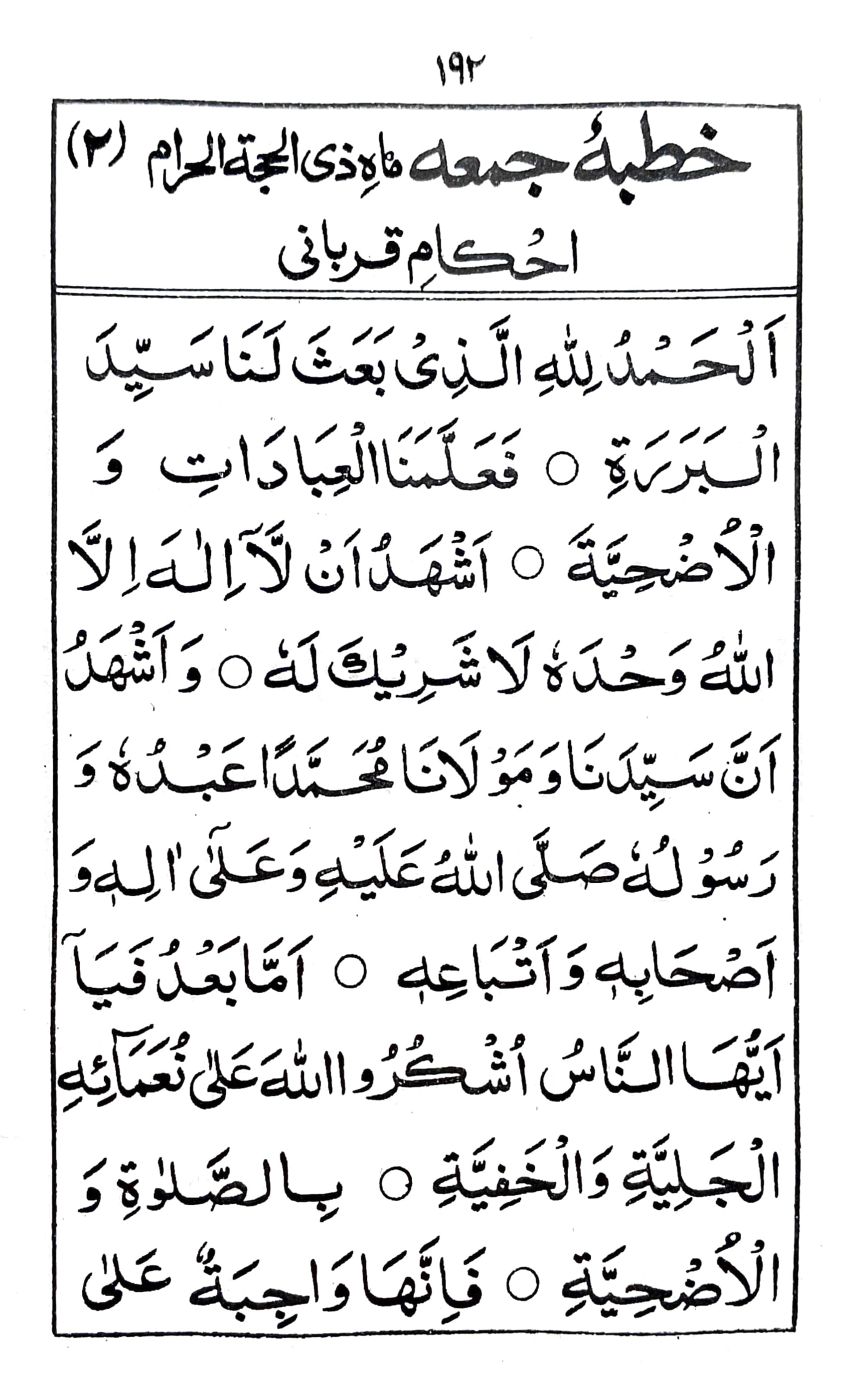 ۱۹۲
خطبۂ جمعه ماہِ ذی الحجۃ الحرام (۲)
احْکامِ قربانی
اَلْحَمْدُ لِلّٰهِ الَّذِیْ بَعَثَ لَنَا سَیِّدَ
الْبَرَرَةِ ○ فَعَلَّمَنَا الْعِبَادَاتِ وَ
الْاُضْحِیَّةَ ○ اَشْهَدُ اَنْ لَّآ اِلٰهَ اِلَّا
اللهُ وَحْدَهٗ لَا شَرِیْكَ لَهٗ ○ وَ اَشْهَدُ
اَنَّ سَیِّدَنَا وَ مَوْلَانَا مُحَمَّدًا عَبْدُهٗ وَ
رَسُوْلُهٗ صَلَّی اللهُ عَلَیْهِ وَ عَلٰٓی اٰلِهٖ وَ
اَصْحَابِهٖ وَ اَتْبَاعِهٖ ○ اَمَّا بَعْدُ فَیَآ
اَیُّهَا النَّاسُ اُشْكُرُوا اللهَ عَلٰی نُعَمَآئِهِ
الْجَلِیَّةِ وَالْخَفِیَّةِ ○ بِالصَّلٰوةِ وَ
الْاُضْحِیَّةِ ○ فَاِنَّهَا وَاجِبَةٌ عَلٰی